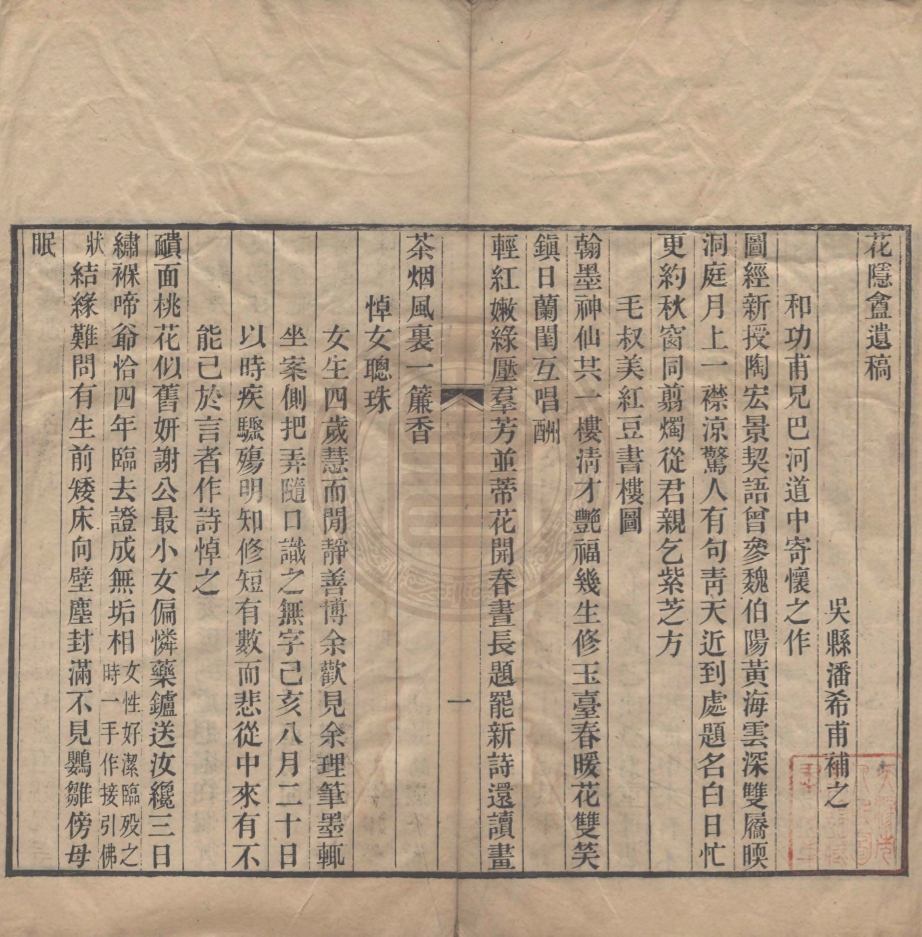 花隱盦遺稿
吳縣潘希甫補之
和功甫兄巴河道中寄懷之作
圖經新授陶宏景契語曾參魏伯陽黃海雲深雙屩暝
洞庭月上一襟涼驚人有句青天近到處題名白日忙
更約秋窗同翦燭從君親乞紫芝方
毛叔美紅豆書樓圖
翰墨神仙共一樓清才艷福幾生修玉臺春暖花雙笑
鎮日蘭閨互唱酬
輕紅嫩綠壓羣芳並蒂花開春晝長題罷新詩還讀畫
一
茶烟風裏一簾香
悼女聰珠
女生四歲慧而閒靜善博余歡見余理筆墨輒
坐案側把弄隨口識之無字己亥八月二十日
以時疾驟殤明知修短有數而悲從中來有不
能己於言者作詩悼之
靧面桃花似舊妍謝公最小女偏憐藥鑪送汝纔三日
繡褓啼爺恰四年臨去證成無垢相女性好潔臨歿之時一手作接引佛
狀結緣難問有生前矮床向壁塵封滿不見鸚雛傍母
眠